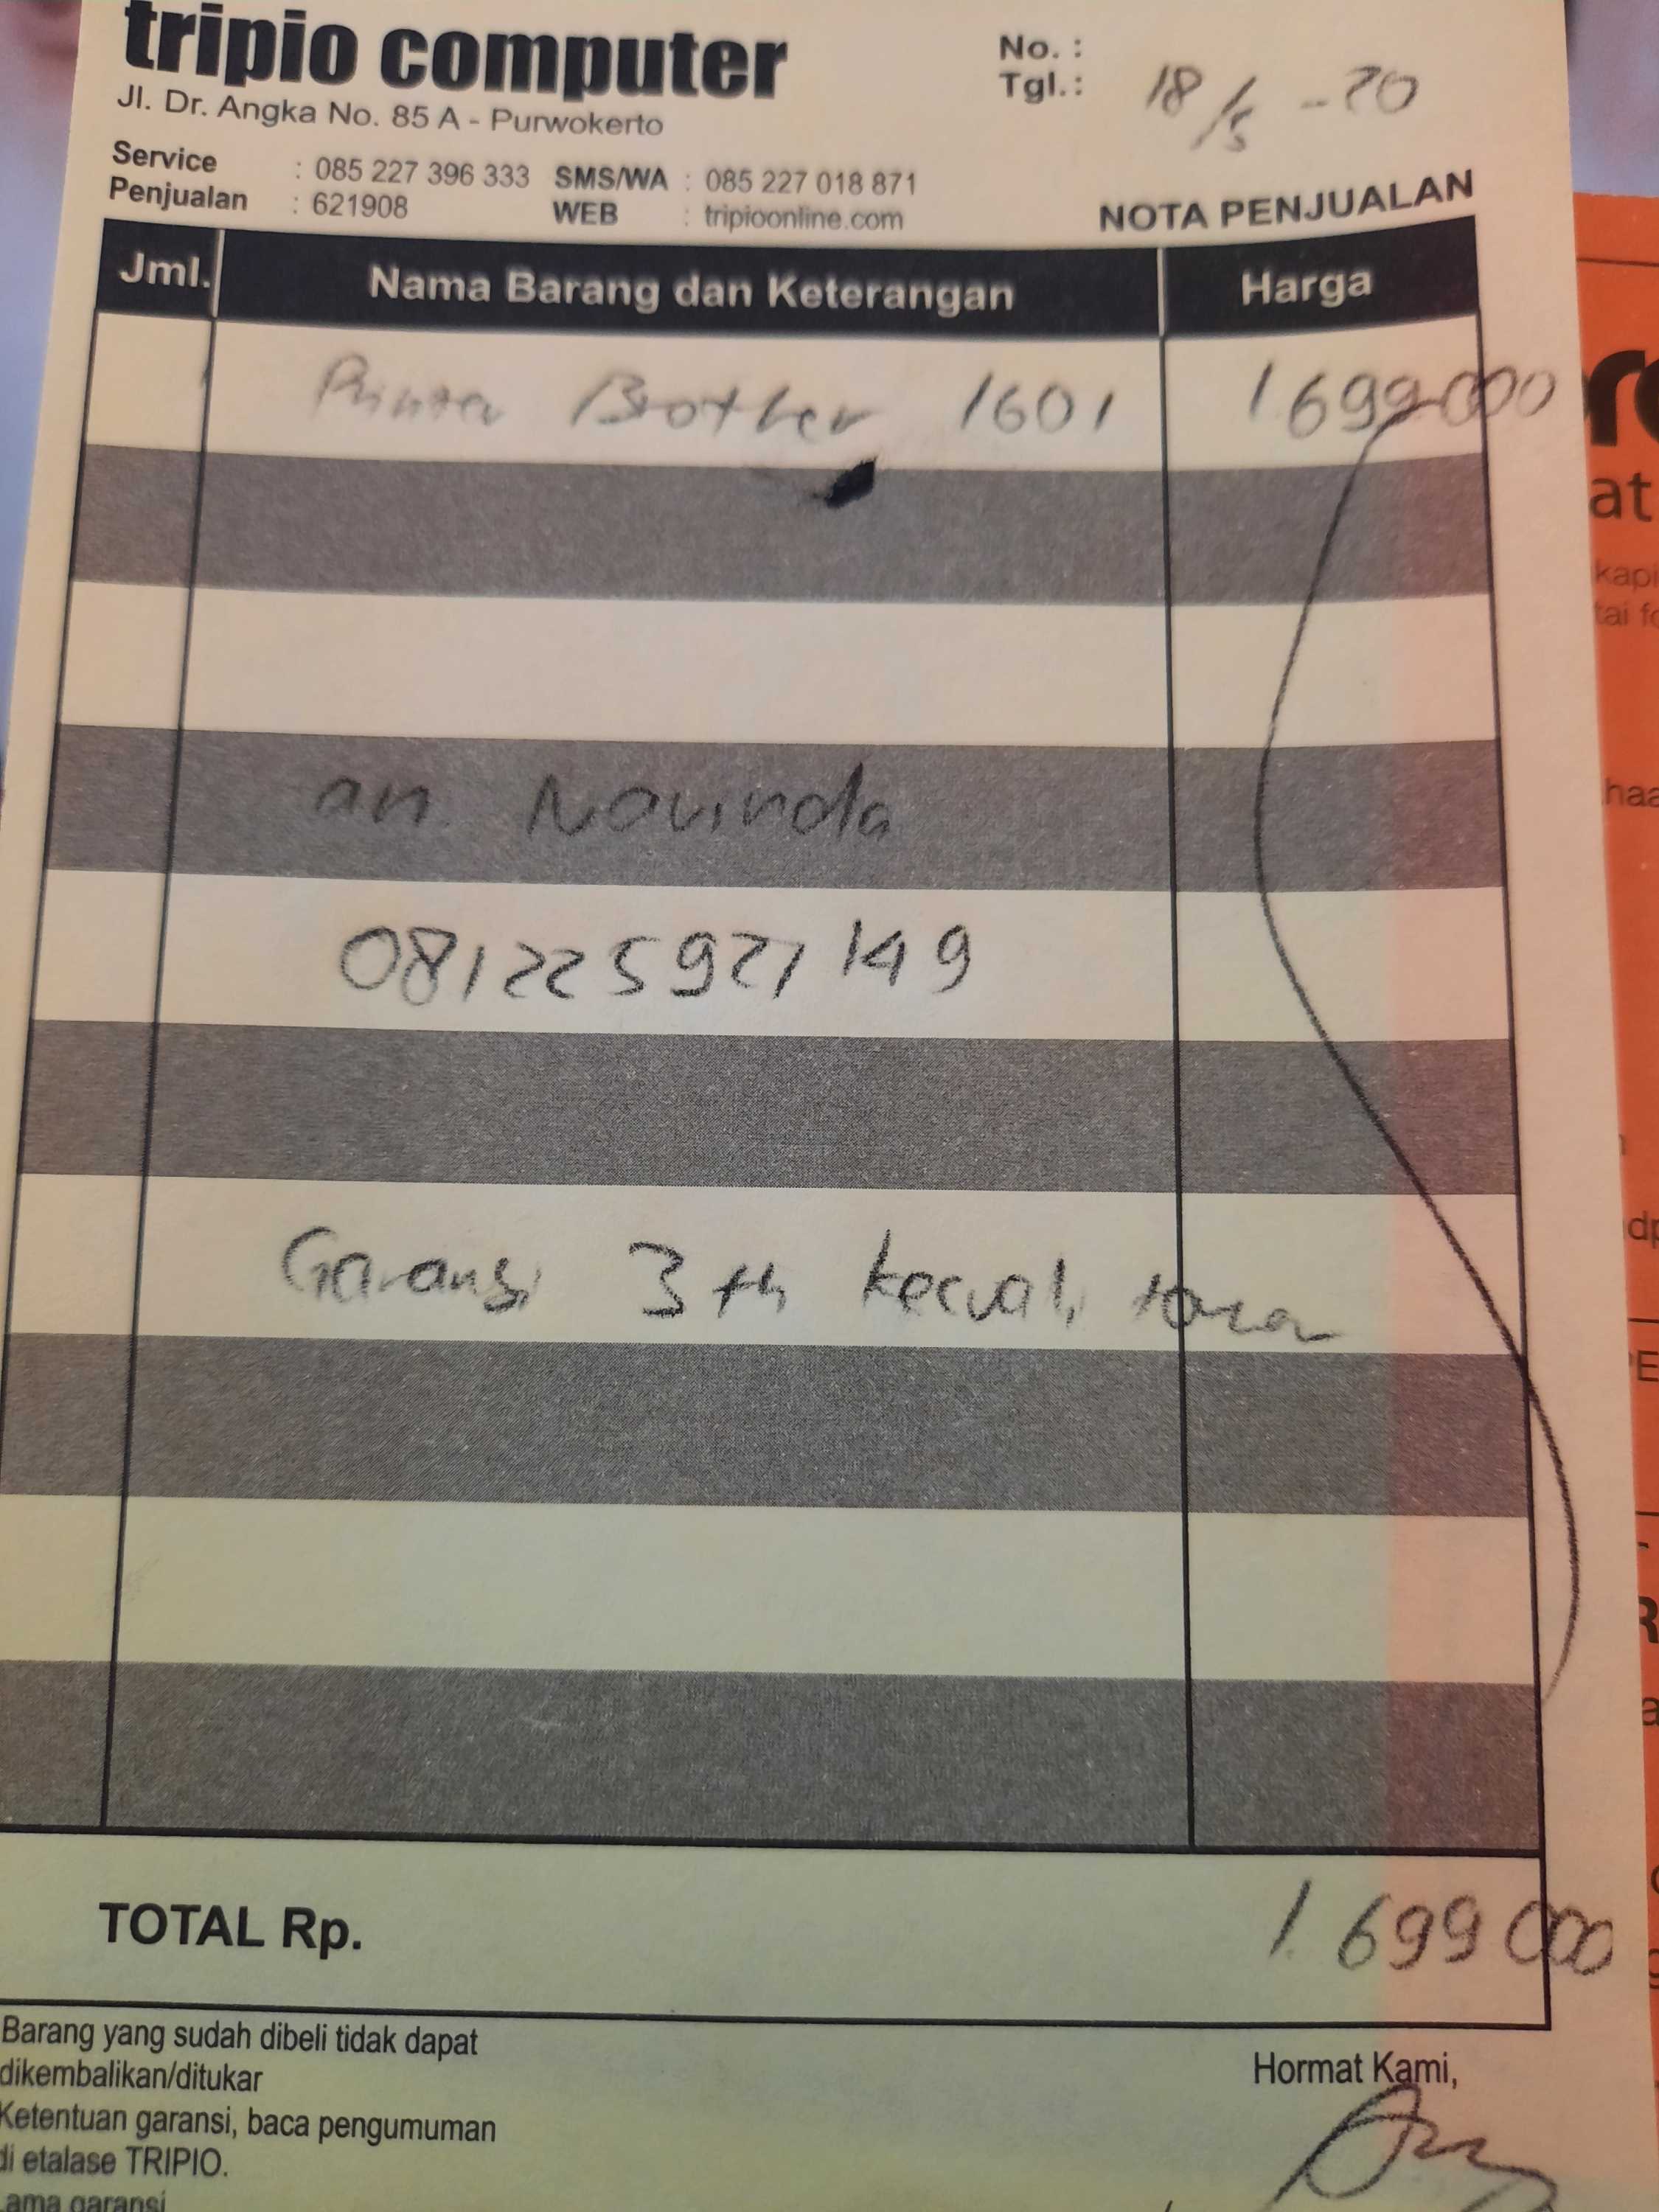 tripio computer
No. :
Jl. Dr. Angka No. 85 A - Purwokerto
Tgl.: 18/5 - 20
Service : 085 227 396 333 SMS/WA : 085 227 018 871
Penjualan : 621908 WEB : tripioonline.com
NOTA PENJUALAN
Jml. Nama Barang dan Keterangan Harga
Printer Brother 1601 1699000
an. Novinda
081225921149
Garansi 3 th kecuali toner
TOTAL Rp. 1.699 000
Barang yang sudah dibeli tidak dapat
dikembalikan/ditukar
Ketentuan garansi, baca pengumuman
di etalase TRIPIO.
Lama garansi
Hormat Kami,
at
kapi
haa